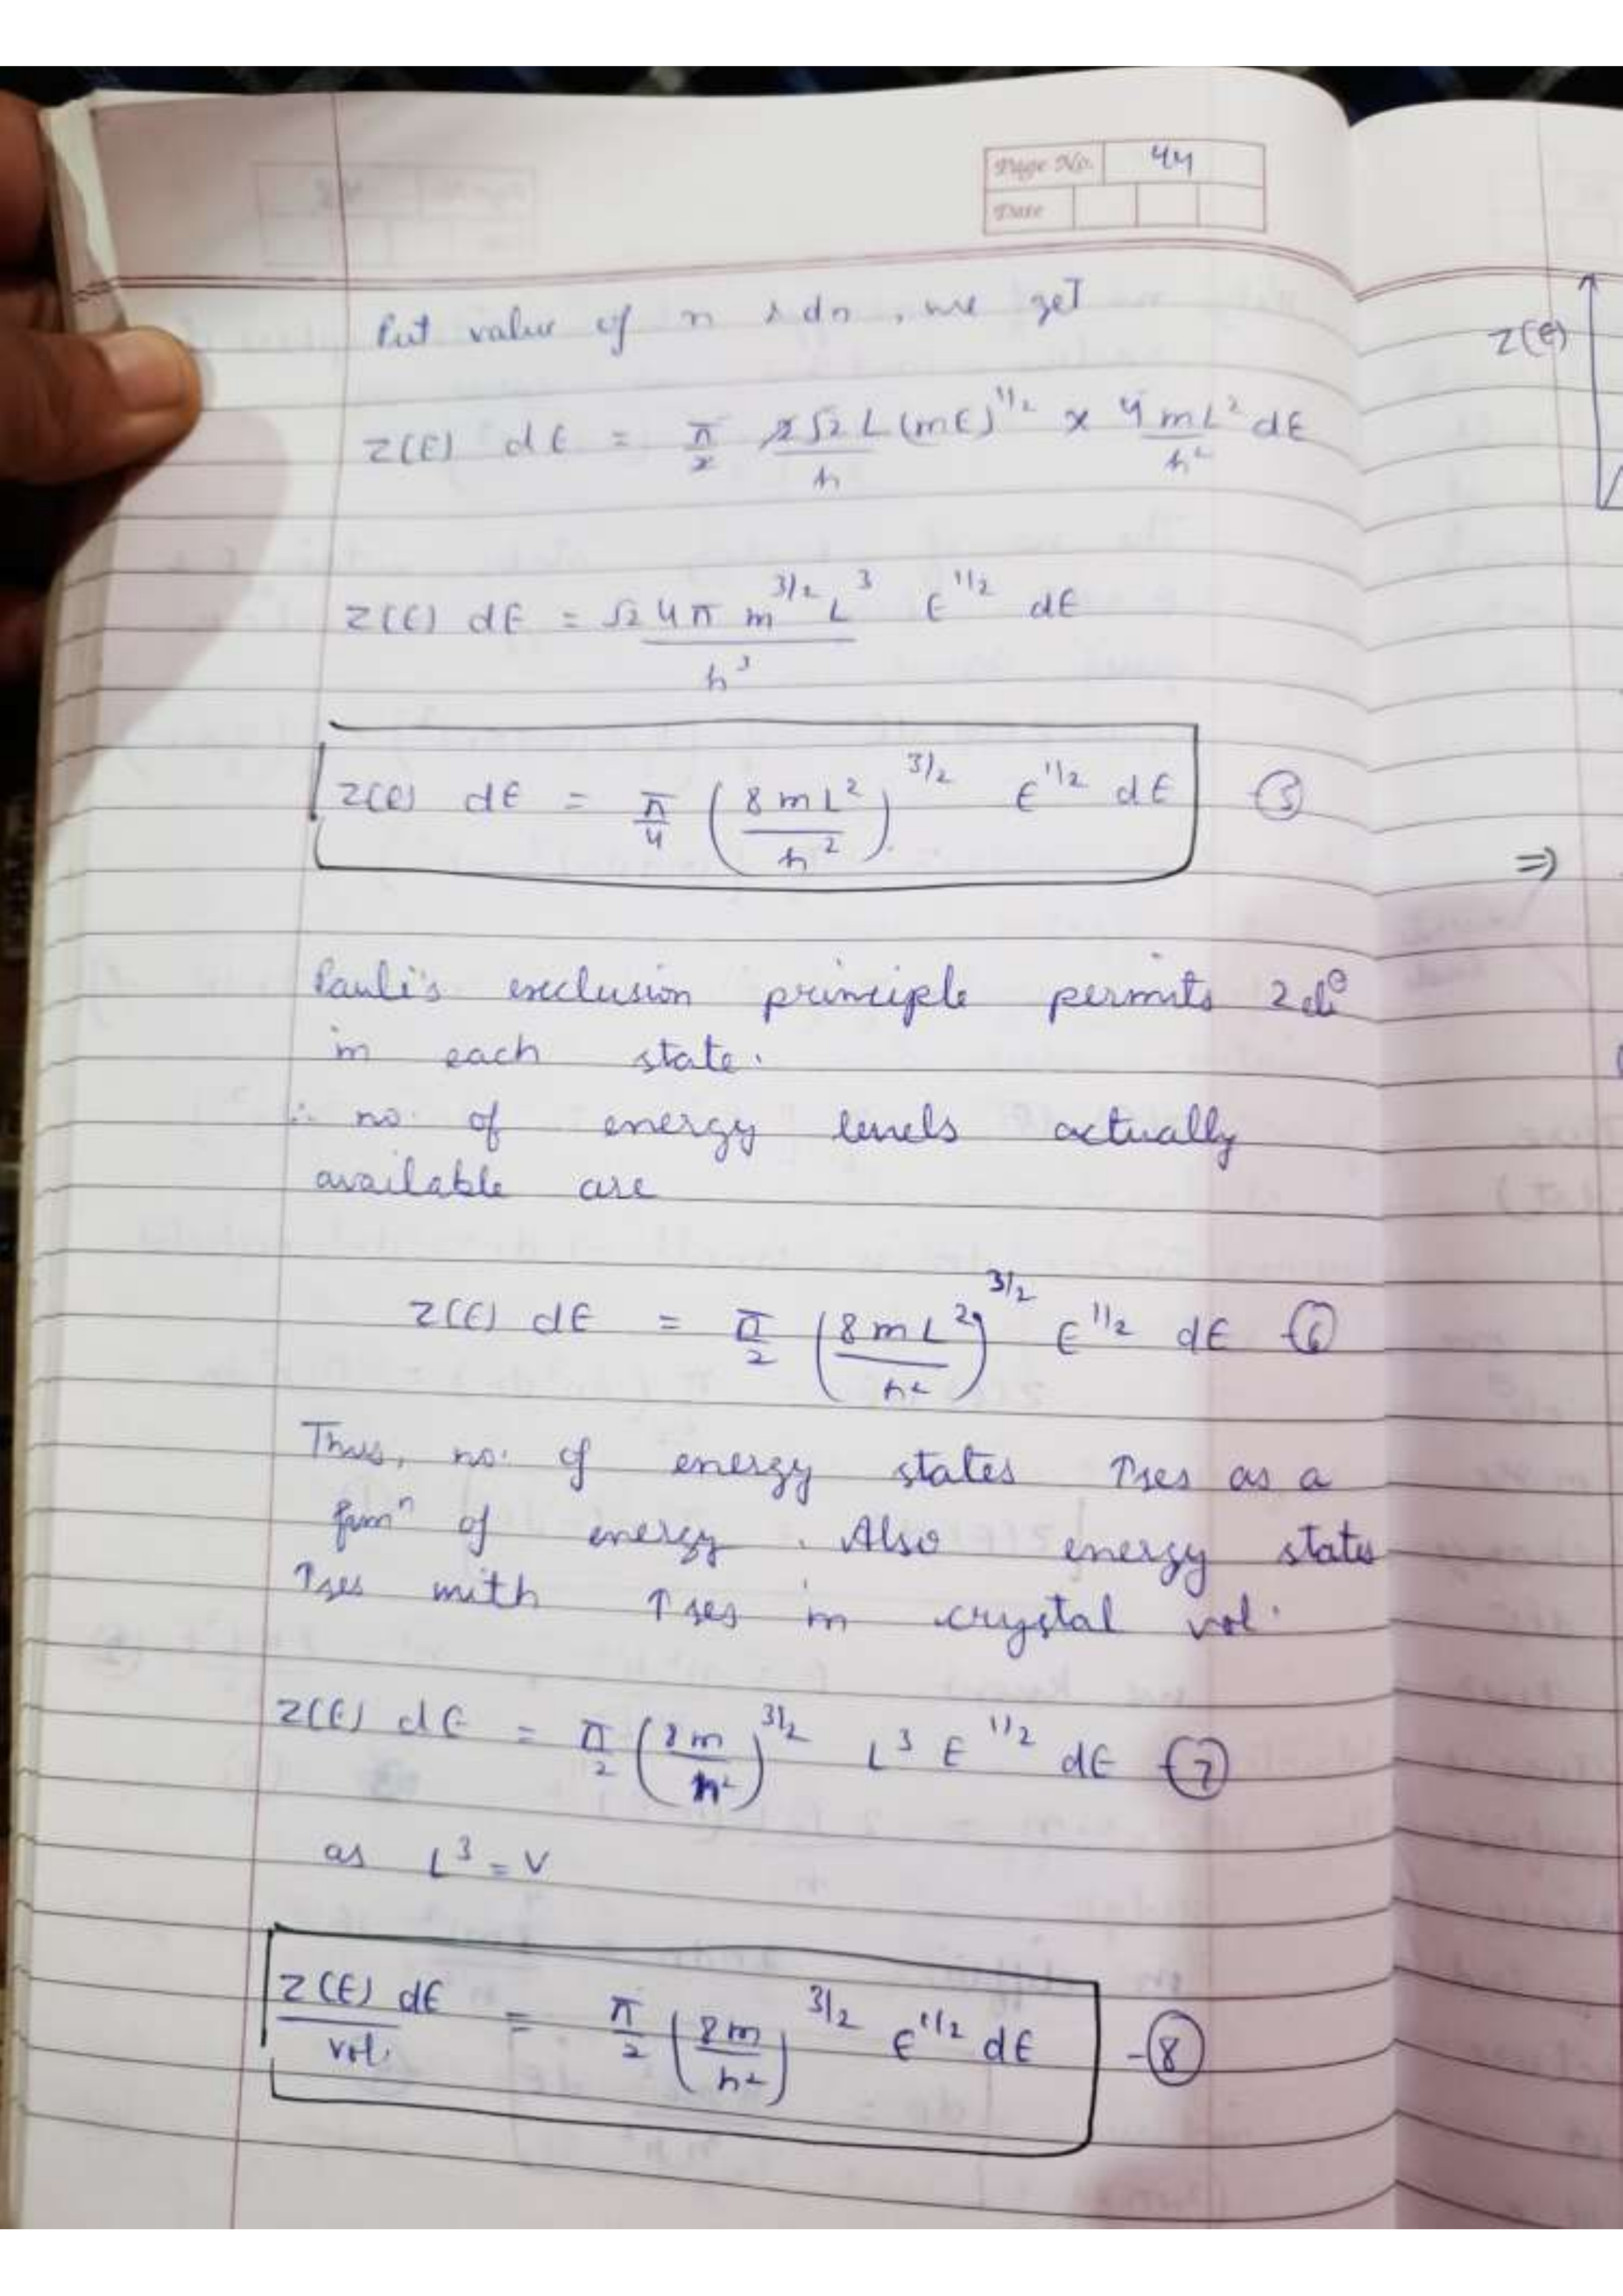 Page No. 44
Date
Put value of n & dn, we get
Z(E) dE = π/2 2√2 L (mE)^1/2 / h × 4mL² dE / h²
Z(E)
Z(E) dE = √2 4π m^3/2 L³ / h³ E^1/2 dE
Z(E) dE = π/4 (8mL² / h²)^3/2 E^1/2 dE -⑤
⇒
Pauli's exclusion principle permits 2 el^e
in each state.
∴ no. of energy levels actually
available are
Z(E) dE = π/2 (8mL² / h²)^3/2 E^1/2 dE -⑥
Thus, no. of energy states ↑ses as a
funⁿ of energy. Also energy states
↑ses with ↑ses in crystal vol.
Z(E) dE = π/2 (8m / h²)^3/2 L³ E^1/2 dE -⑦
as L³ = V
Z(E) dE / vol. = π/2 (8m / h²)^3/2 E^1/2 dE -⑧